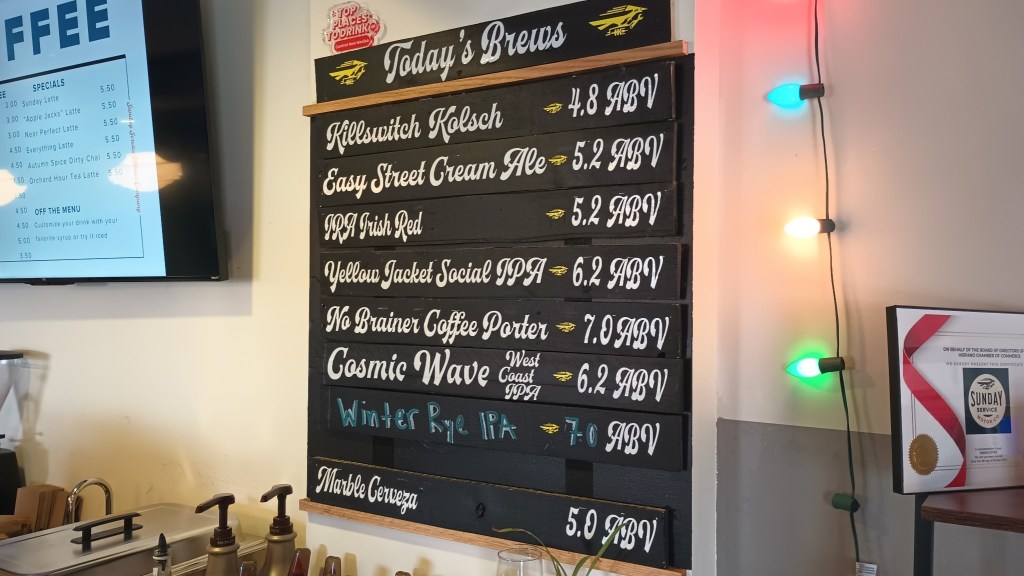 FFEE
SPECIALS
3.00 Sunday Latte 5.50
3.00 "Apple Jacks" Latte 5.50
Near Perfect Latte 5.50
4.50 Everything Latte 5.50
4.50 Autumn Spice Dirty Chai 5.50
Orchard Hour Tea Latte 5.50
4.50 OFF THE MENU
4.50 Customize your drink with your
5.00 favorite syrup or try it iced
3.50
TOP
PLACES
TO DRINK
Today's Brews
Killswitch Kolsch 4.8 ABV
Easy Street Cream Ale 5.2 ABV
IRA Irish Red 5.2 ABV
Yellow Jacket Social IPA 6.2 ABV
No Brainer Coffee Porter 7.0 ABV
Cosmic Wave West Coast IPA 6.2 ABV
Winter Rye IPA 7.0 ABV
Marble Cerveza 5.0 ABV
ON BEHALF OF THE BOARD OF DIRECTORS
CHAMBER OF COMMERCE
SUNDAY
SERVICE